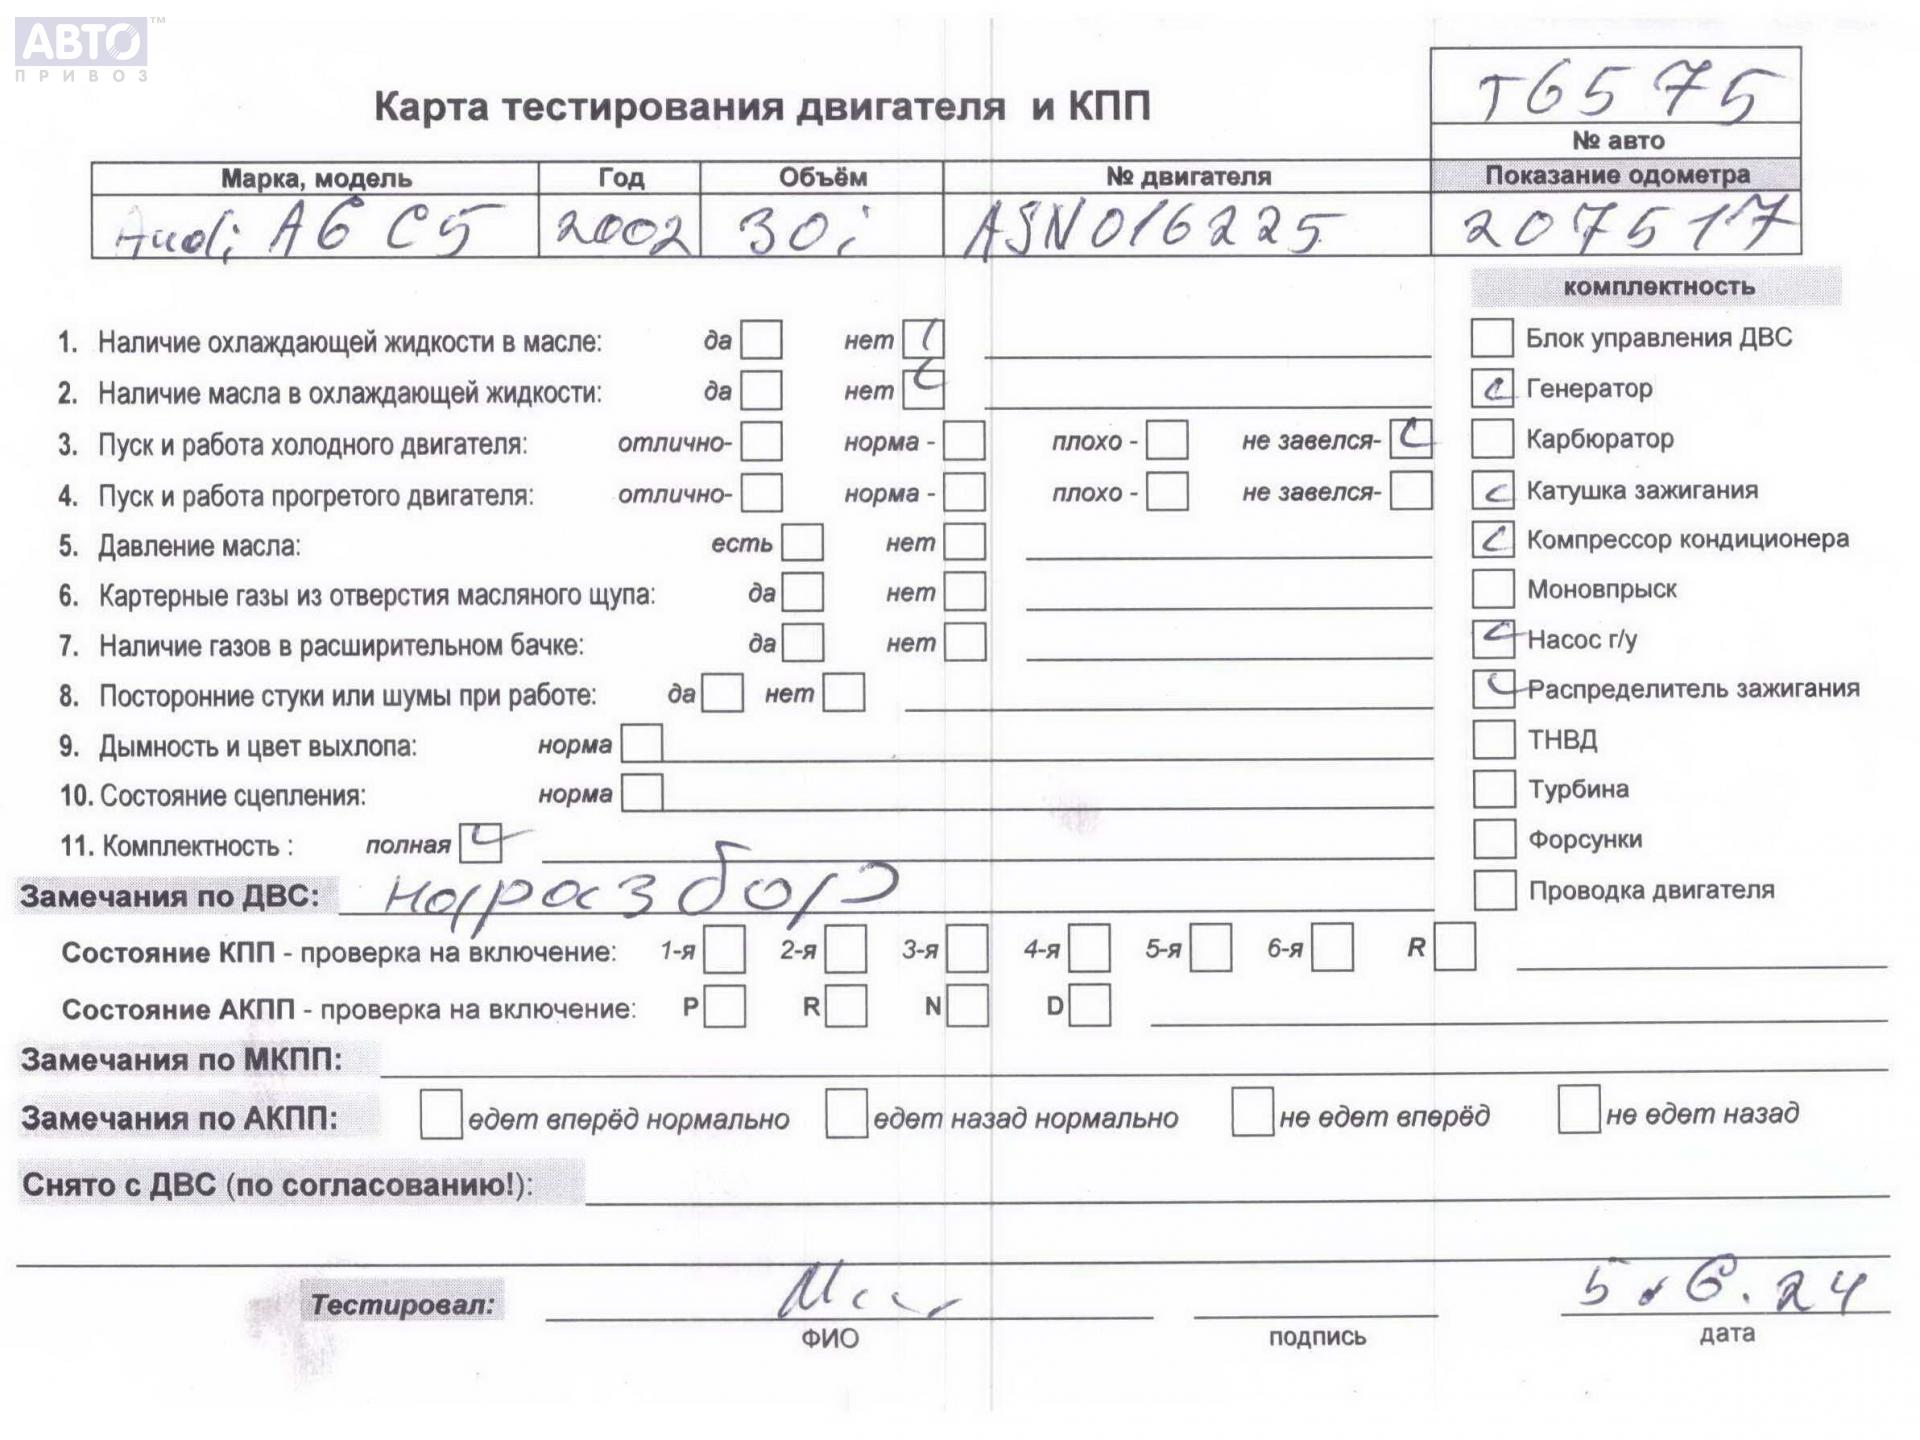 АВТО™
ПРИВОЗ
Т6575
Карта тестирования двигателя и КПП
№ авто
Марка, модель Год Объём № двигателя Показание одометра
Audi A6 C5 2002 30i ASN016225 207517
комплектность
1. Наличие охлаждающей жидкости в масле: да нет
Блок управления ДВС
2. Наличие масла в охлаждающей жидкости: да нет
Генератор
3. Пуск и работа холодного двигателя: отлично- норма - плохо - не завелся-
Карбюратор
4. Пуск и работа прогретого двигателя: отлично- норма - плохо - не завелся-
Катушка зажигания
5. Давление масла: есть нет
Компрессор кондиционера
6. Картерные газы из отверстия масляного щупа: да нет
Моновпрыск
7. Наличие газов в расширительном бачке: да нет
Насос г/у
8. Посторонние стуки или шумы при работе: да нет
Распределитель зажигания
9. Дымность и цвет выхлопа: норма
ТНВД
10. Состояние сцепления: норма
Турбина
11. Комплектность : полная
Форсунки
Замечания по ДВС: на разбор
Проводка двигателя
Состояние КПП - проверка на включение: 1-я 2-я 3-я 4-я 5-я 6-я R
Состояние АКПП - проверка на включение: P R N D
Замечания по МКПП:
Замечания по АКПП: едет вперёд нормально едет назад нормально не едет вперёд не едет назад
Снято с ДВС (по согласованию!):
Тестировал: 5.6.24
ФИО подпись дата